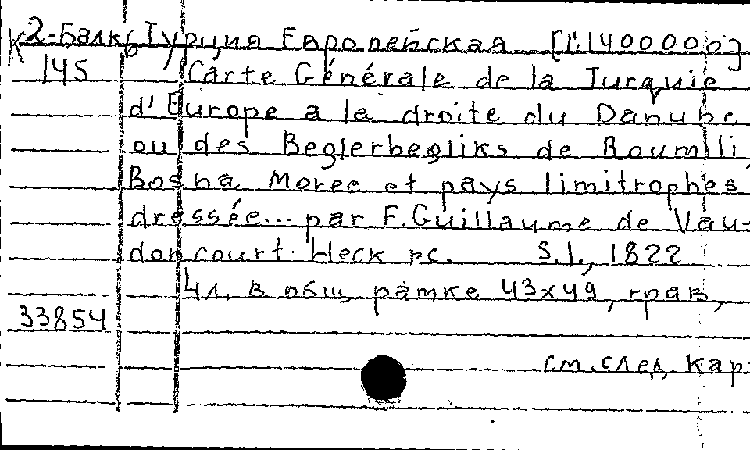 К 2-Балк Турция Европейская [1:1400000]
6
145 Carte Générale de la Turquie
d'Europe a la droite du Danube
ou des Beglerbegliks de Roumili,
Bosna, Moree et pays limitrophes
dressée... par F. Guillaume de Vau-
doncourt. Heck sc. S.l., 1822
4 л. в общ. рамке 43x49, грав.,
33854
см. след. кар